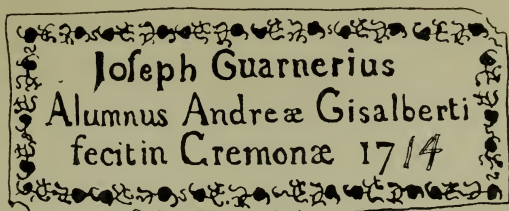 Joſeph Guarnerius
Alumnus Andreæ Gisalberti
fecit in Cremonæ 1714